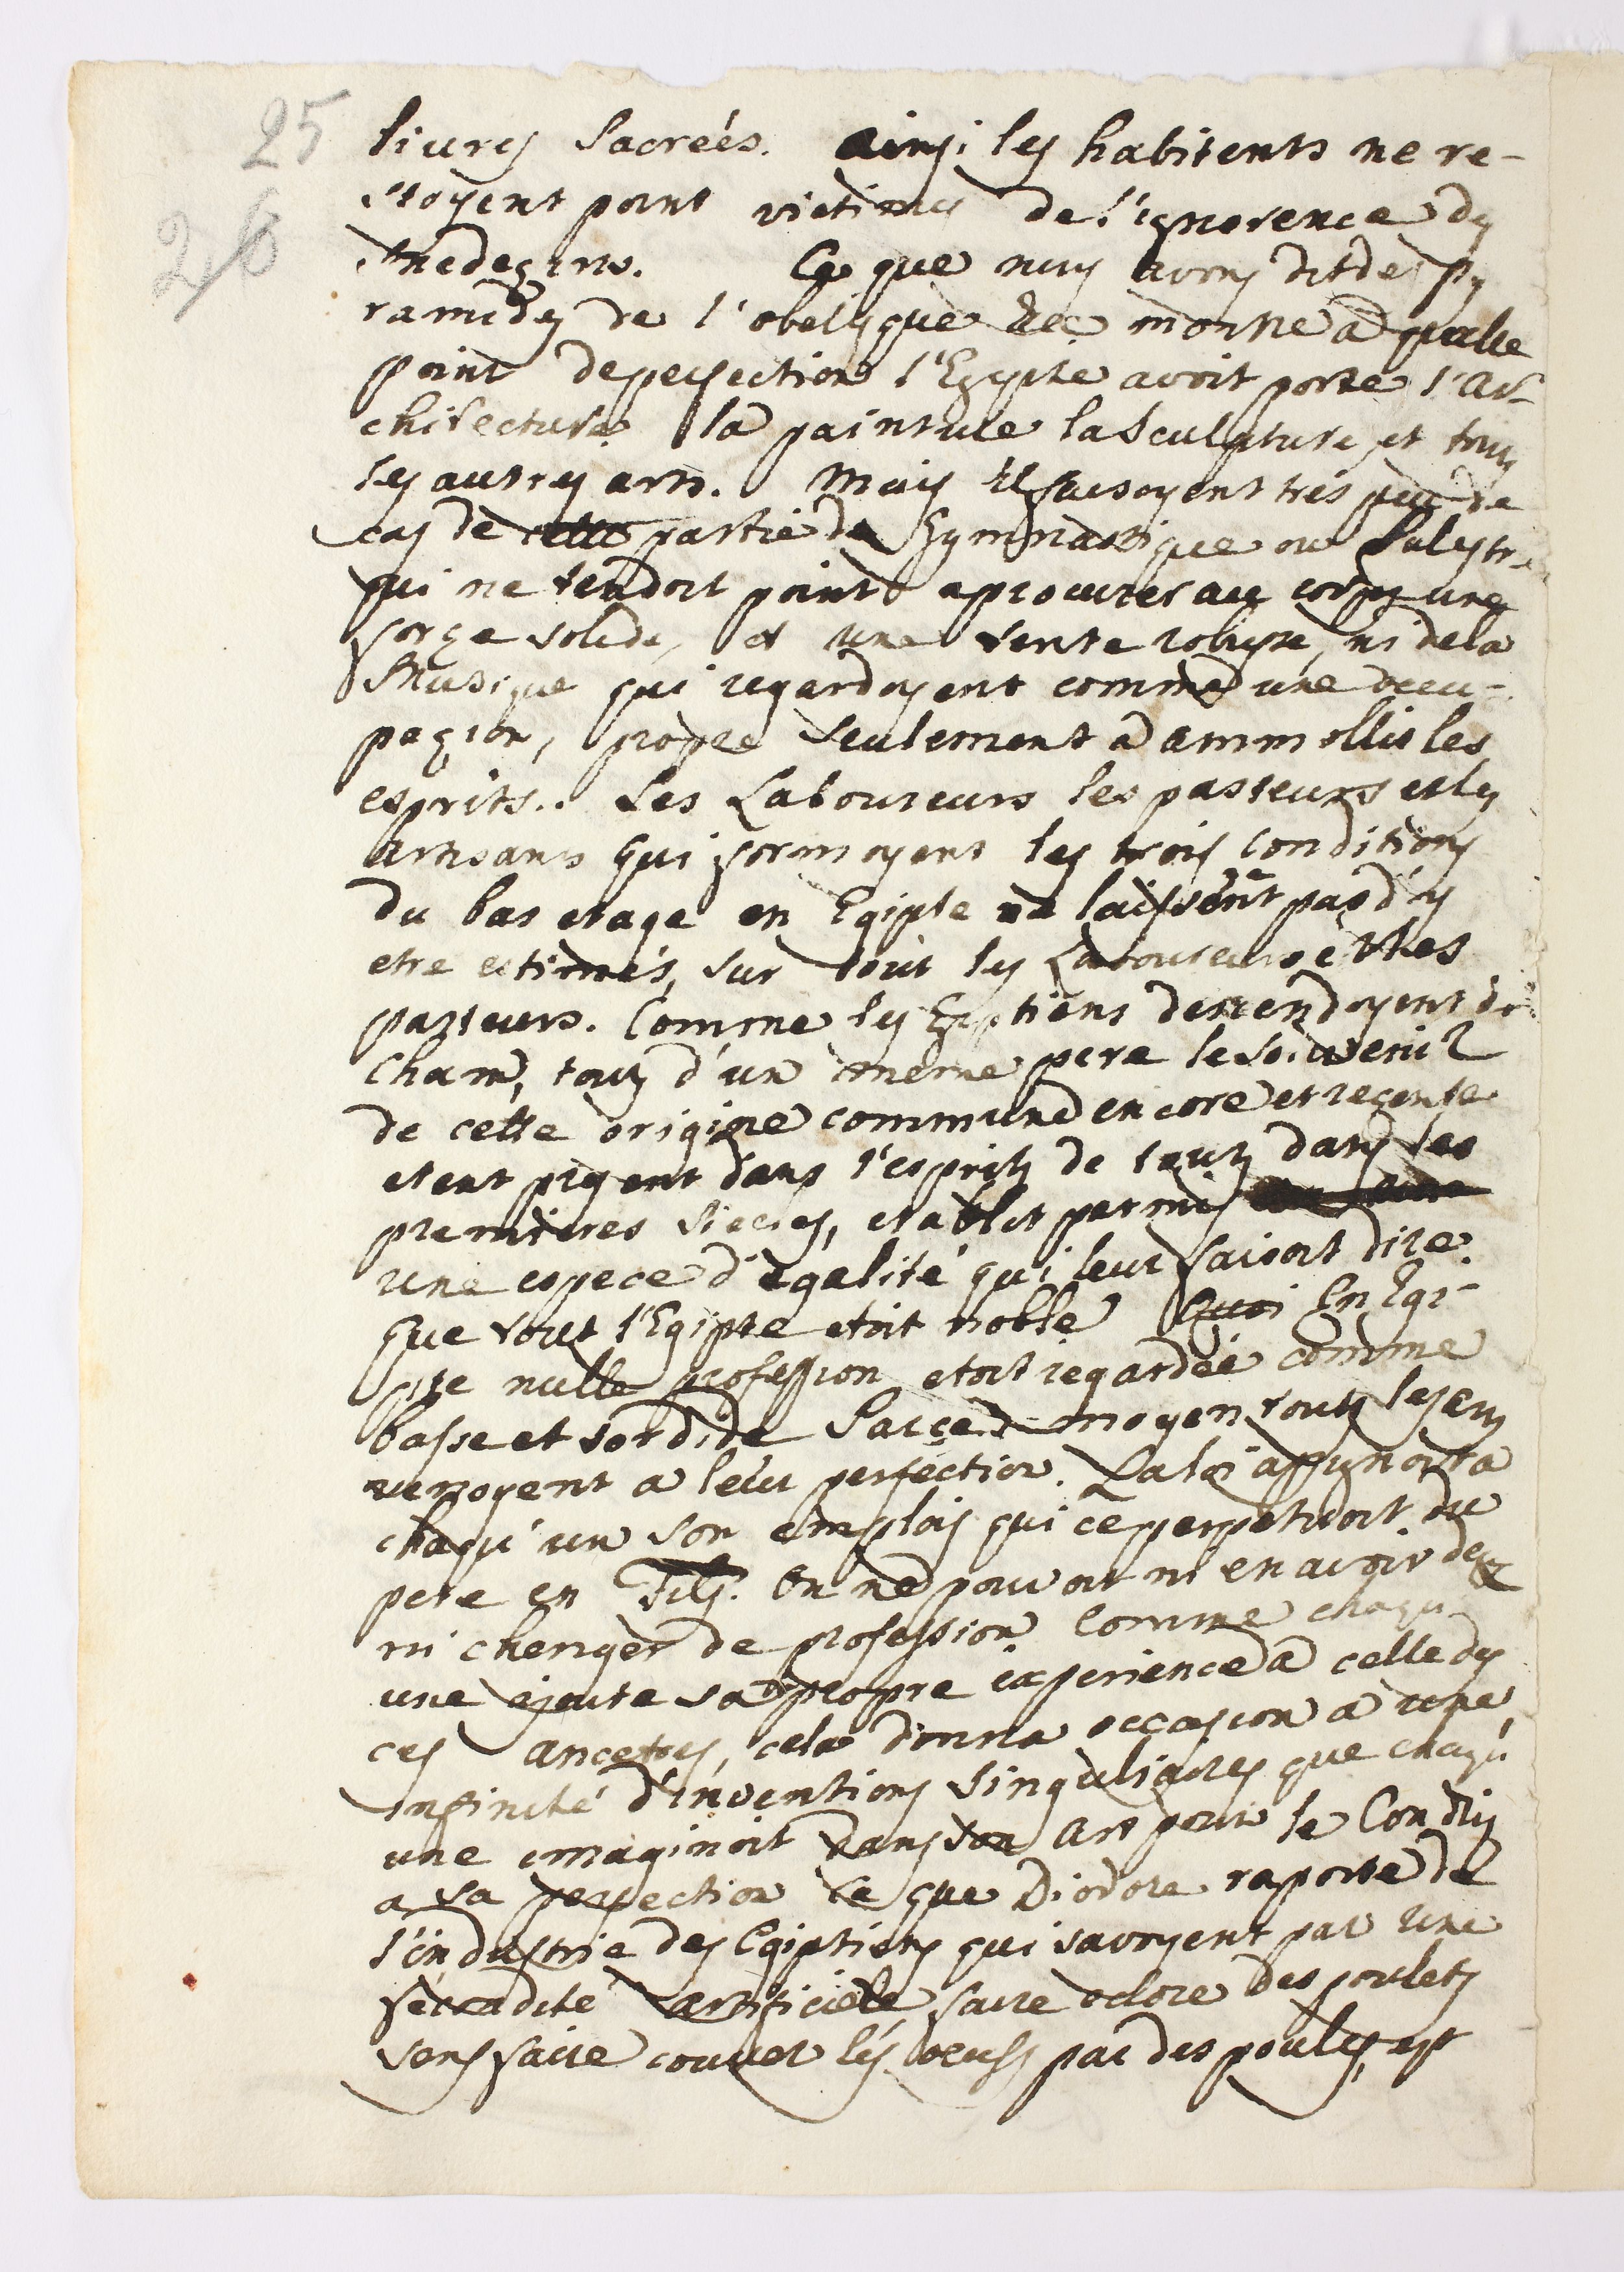 25
26
livres Sacreés. ainsi les habitents ne re-
stoyent point victimes de l'ignorence des
medeçins. Ce que nous avons dit des py
ramides de l'obelisque &c montre a quelle
point de perfection l'Egypte avoit porté l'ar-
chitecture la painture la Sculpture et tous
les autres arts. Mais ils faisoyent trés peu de
cas de cette partie de Gymnastique ou Palestre
qui ne tendoit point a procurer au corps une
force solide, et une sente robuste, ni de la
Musique qui regardoyent comme une occu-
paçion, propre seulement a ammollir les
esprits.. Les Laboureurs les pasteurs et les
artisans qui formoyent les trois conditions
du bas etage en Egipte ne laissoint pas d'y
etre estimés, sur tout les Laboureurs et les
pasteurs. Comme les Egiptiens descendoyent de
Cham, touts d'un meme pere le souvenir
de cette origine commune encore et recente
etent present dans l'esprits de touts dans les
premieres siecles, etablit parmis
une espece d'egalité qui leur faisoit dire.
que tout l'Egipte etoit noble Quoi En Egi-
pte nulle profession etoit regardée comme
basse et sordide Par ce moyen touts les arts
venoyent a leur perfection. La loi assignoit a
chaqu'un son emplois qui ce perpetuoit du
pere en Fils. On ne pouvoit ni en avoir deux
ni chenger de profession Comme chaqu
une ejoute sa propre experience a celle des
ces ancetres, cela donna occasion a une
infinité d'inventions singuliaires que chaqu'
une imaginoit dans son art pour le Conduir
a sa perfection Ce que Diodore raporte de
l'industrie des Egiptiens qui savoyent par une
fecondité artificiele faire eclore des poulets
sens faire couver les oeufs par des poules, est